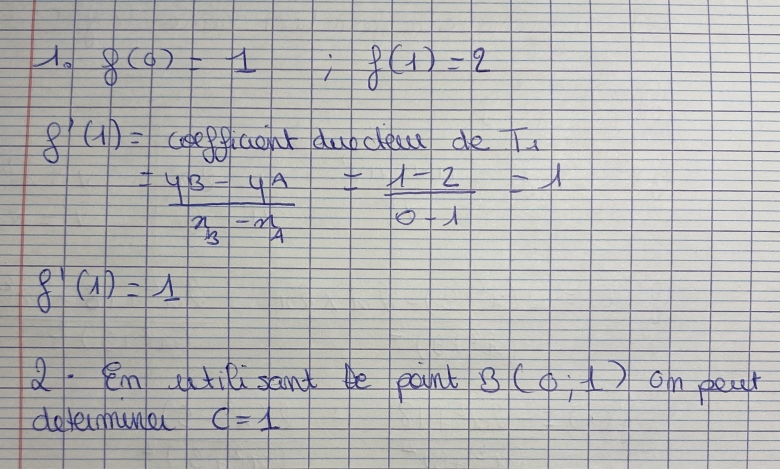 1. f(0) = 1 ; f(1) = 2
f'(1) = coefficient directeur de T1
= yB - yA / xB - xA = 1 - 2 / 0 - 1 = 1
f'(1) = 1
2 - En utilisant le point B(0;1) on peut
determiner C = 1